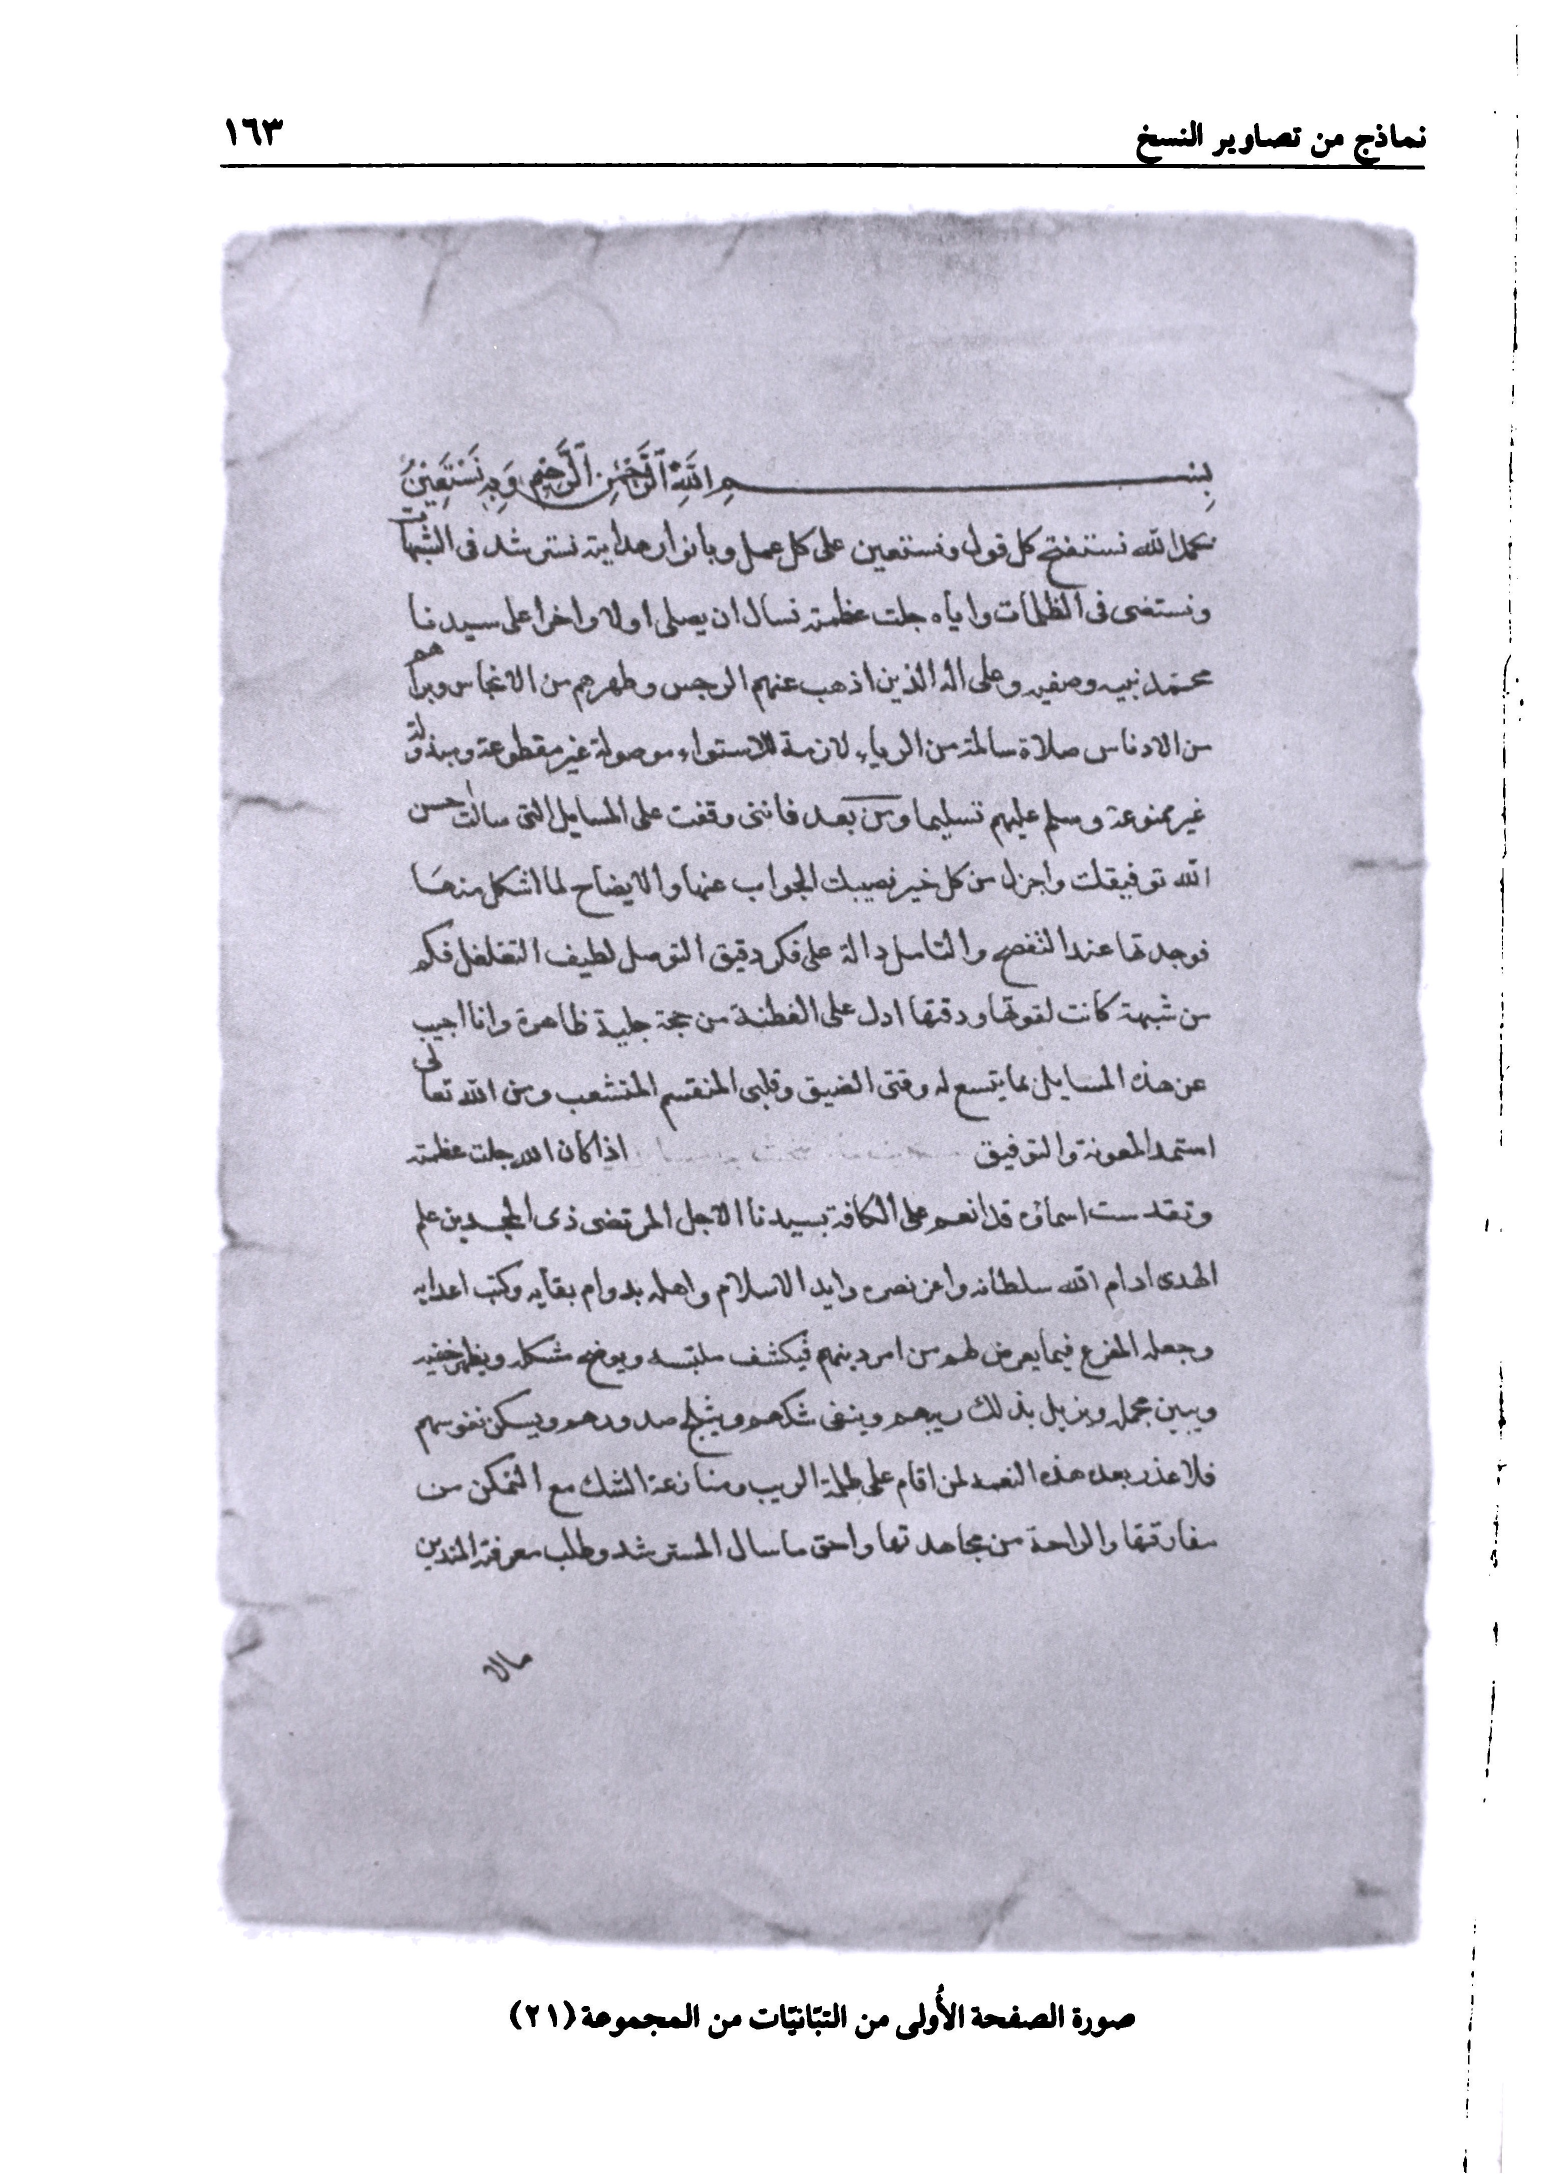 نماذج من تصاوير النسخ
١٦٣
بِسْمِ اللَّهِ الرَّحْمَٰنِ الرَّحِيمِ وَبِهِ نَسْتَعِيْنُ
بحمد الله نستفتح كل قول ونستعين على كل عمل وبانوار هدايته نسترشد فى الشبهات
ونستضى فى الظلمات واياه جلت عظمته نسال ان يصلى اولا واخرا على سيدنا
محمد نبيه وصفيه وعلى اله الذين اذهب عنهم الرجس وطهرهم من الانجاس وبراهم
من الادناس صلاة سالمة من الرياء لازمة للاستواء موصولة غير مقطوعة ومبذولة
غير ممنوعة وسلم عليهم تسليما ومن بعد فاننى وقفت على المسايل التى سالت حسن
الله توفيقك واجزل من كل خير نصيبك الجواب عنها والايضاح لما اشكل منها
فوجدتها عند التفصح والتامل دالة على فكر دقيق التوصل لطيف التغلغل فكم
من شبهة كانت لقوتها ودقتها ادل على الفطنة من حجة جلية ظاهرة وانا اجيب
عن هذه المسايل بما يتسع له وقتى الضيق وقلبى المنقسم المتشعب ومن الله تعالى
استمد المعونة والتوفيق اذا كان الله جلت عظمته
وتقدست اسماؤه قد انعم على الكافة بسيدنا الاجل المرتضى ذى المجدين علم
الهدى ادام الله سلطانه واعز نصره وايد الاسلام واهله بدوام بقايه وكبت اعدايه
وجعله المفزع فيما يعرض لهم من امر دينهم فيكشف ملتبسه ويوضح مشكله ويظهر خفيه
ويبين مجمله ويزيل بذلك ريبهم وينفى شكهم ويثلج صدورهم ويسكن نفوسهم
فلا عذر بعد هذه النعمة لمن اقام على ظلمة الريب ومنازعة الشك مع التمكن من
مفارقتها والراحة من مجاهدتها واحق ما سال المسترشد وطلب معرفة المتدين
مالا
صورة الصفحة الأُولى من التبّانيّات من المجموعة (٢١)